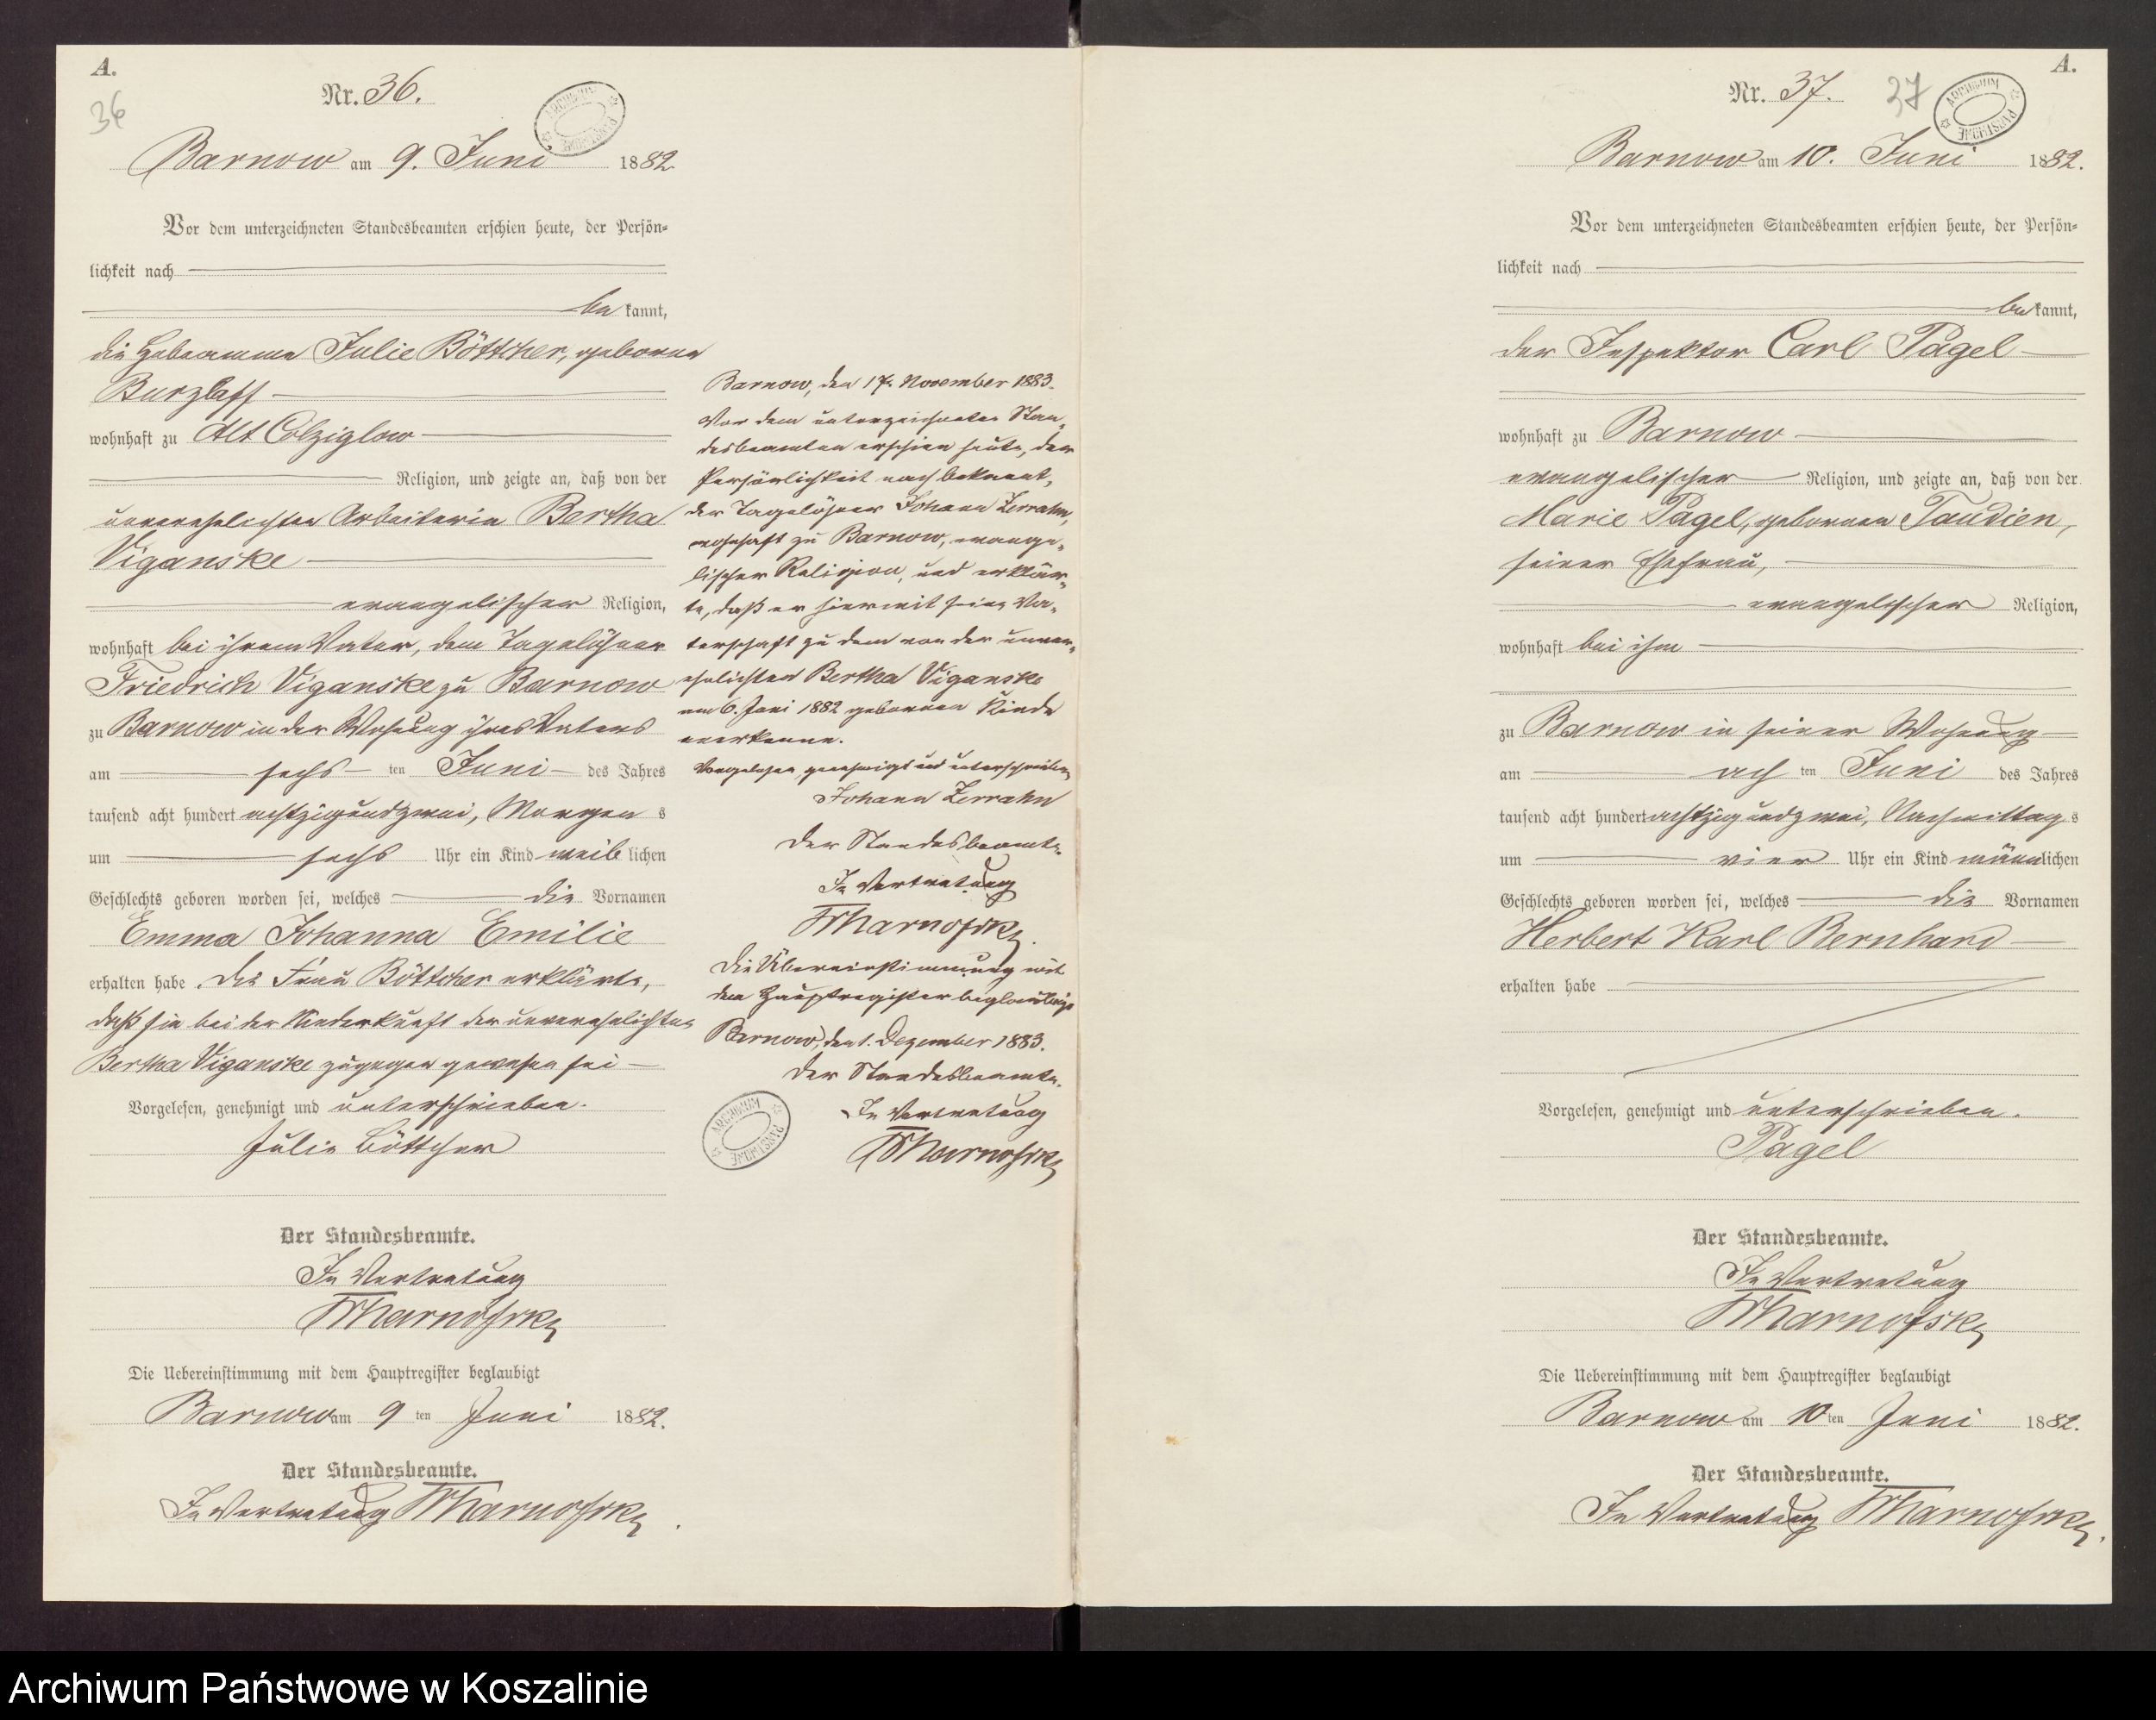 A.
Nr. 36.
36
ARCHIWUM PAŃSTWOWE
Barnow am 9. Juni 1882.
Vor dem unterzeichneten Standesbeamten erschien heute, der Persön-
lichkeit nach
bekannt,
die Hebeamme Julie Böttcher, geborene
Burzlaff
wohnhaft zu Alt Colziglow
Religion, und zeigte an, daß von der
unverehelichten Arbeiterin Bertha
Viganske
evangelischer Religion,
wohnhaft bei ihrem Vater, dem Tagelöhner
Friedrich Viganske zu Barnow
zu Barnow in der Wohnung ihres Vaters
am sechsten Juni des Jahres
tausend acht hundert achtzig und zwei, Morgens
um sechs Uhr ein Kind weiblichen
Geschlechts geboren worden sei, welches die Vornamen
Emma Johanna Emilie
erhalten habe. Die Frau Böttcher erklärte,
daß sie bei der Niederkunft der unverehelichten
Bertha Viganske zugegen gewesen sei
Vorgelesen, genehmigt und unterschrieben.
Julie Böttcher
Der Standesbeamte.
In Vertretung
Die Uebereinstimmung mit dem Hauptregister beglaubigt
Barnow am 9ten Juni 1882.
Der Standesbeamte.
In Vertretung
Barnow, den 17. November 1883.
Vor dem unterzeichneten Stan-
desbeamten erschien heute, der
Persönlichkeit nach bekannt,
der Tagelöhner Johann Zerrahn,
wohnhaft zu Barnow, evange-
lischer Religion, und erklär-
te, daß er hiermit seine Va-
terschaft zu dem von der unver-
ehelichten Bertha Viganske
am 6. Juni 1882 geborenen Kinde
anerkenne.
Vorgelesen genehmigt und unterschrieben
Johann Zerrahn
Der Standesbeamte.
In Vertretung
Die Übereinstimmung mit
dem Hauptregister beglaubigt
Barnow, den 1. Dezember 1883.
Der Standesbeamte.
In Vertretung
ARCHIWUM PAŃSTWOWE
A.
Nr. 37.
37
ARCHIWUM PAŃSTWOWE
Barnow am 10. Juni 1882.
Vor dem unterzeichneten Standesbeamten erschien heute, der Persön-
lichkeit nach
bekannt,
der Inspektor Carl Pagel
wohnhaft zu Barnow
evangelischer Religion, und zeigte an, daß von der
Marie Pagel, geborenen Taudien,
seiner Ehefrau,
evangelischer Religion,
wohnhaft bei ihm
zu Barnow in seiner Wohnung
am achten Juni des Jahres
tausend acht hundert achtzig und zwei, Nachmittags
um vier Uhr ein Kind männlichen
Geschlechts geboren worden sei, welches die Vornamen
Herbert Karl Bernhard
erhalten habe
Vorgelesen, genehmigt und unterschrieben.
Pagel
Der Standesbeamte.
In Vertretung
Die Uebereinstimmung mit dem Hauptregister beglaubigt
Barnow am 10ten Juni 1882.
Der Standesbeamte.
In Vertretung
Archiwum Państwowe w Koszalinie